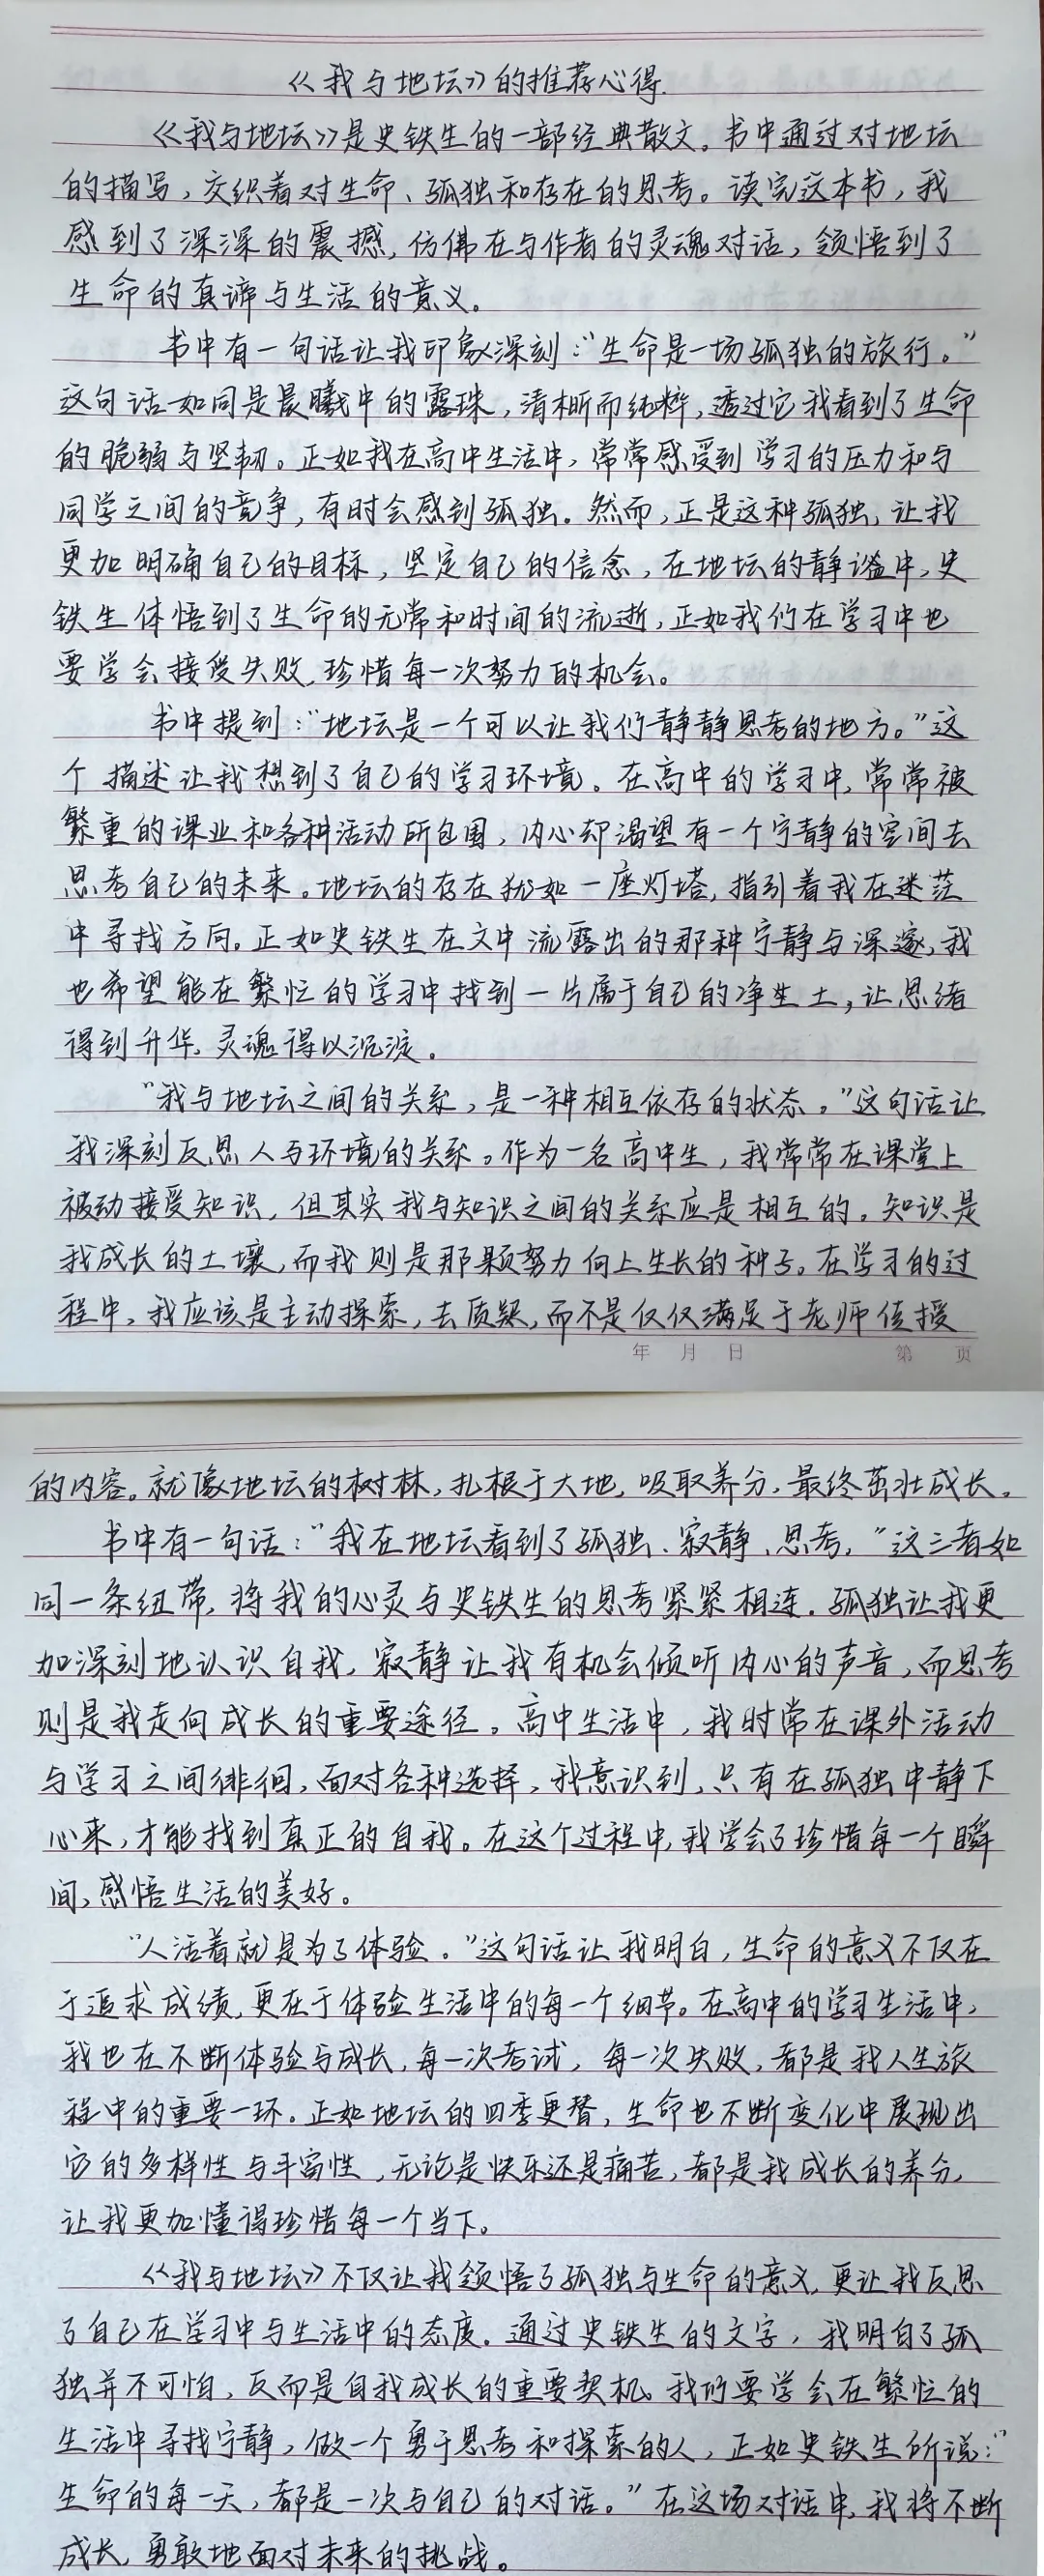 《我与地坛》的推荐心得.
《我与地坛》是史铁生的一部经典散文。书中通过对地坛
的描写，交织着对生命、孤独和存在的思考。读完这本书，我
感到了深深的震撼，仿佛在与作者的灵魂对话，领悟到了
生命的真谛与生活的意义。
书中有一句话让我印象深刻：“生命是一场孤独的旅行。”
这句话如同是晨曦中的露珠，清晰而纯粹，透过它我看到了生命
的脆弱与坚韧。正如我在高中生活中，常常感受到学习的压力和与
同学之间的竞争，有时会感到孤独。然而，正是这种孤独，让我
更加明确自己的目标，坚定自己的信念，在地坛的静谧中，史
铁生体悟到了生命的无常和时间的流逝，正如我们在学习中也
要学会接受失败，珍惜每一次努力的机会。
书中提到：“地坛是一个可以让我们静静思考的地方。”这
个描述让我想到了自己的学习环境。在高中的学习中，常常被
繁重的课业和各种活动所包围，内心却渴望有一个宁静的空间去
思考自己的未来。地坛的存在犹如一座灯塔，指引着我在迷茫
中寻找方向。正如史铁生在文中流露出的那种宁静与深邃，我
也希望能在繁忙的学习中找到一片属于自己的净生土，让思绪
得到升华，灵魂得以沉淀。
“我与地坛之间的关系，是一种相互依存的状态。”这句话让
我深刻反思人与环境的关系。作为一名高中生，我常常在课堂上
被动接受知识，但其实我与知识之间的关系应是相互的。知识是
我成长的土壤，而我则是那颗努力向上生长的种子。在学习的过
程中，我应该是主动探索，去质疑，而不是仅仅满足于老师传授
年 月 日 第 页
的内容。就像地坛的树林，扎根于大地，吸取养分，最终茁壮成长。
书中有一句话：“我在地坛看到了孤独、寂静、思考，”这三者如
同一条纽带，将我的心灵与史铁生的思考紧紧相连．孤独让我更
加深刻地认识自我，寂静让我有机会倾听内心的声音，而思考
则是我走向成长的重要途径。高中生活中，我时常在课外活动
与学习之间徘徊，面对各种选择，我意识到，只有在孤独中静下
心来，才能找到真正的自我。在这个过程中，我学会了珍惜每一个瞬
间，感悟生活的美好。
“人活着就是为了体验。”这句话让我明白，生命的意义不仅在
于追求成绩，更在于体验生活中的每一个细节。在高中的学习生活中，
我也在不断体验与成长，每一次考试，每一次失败，都是我人生旅
程中的重要一环。正如地坛的四季更替，生命也不断变化中展现出
它的多样性与丰富性，无论是快乐还是痛苦，都是我成长的养分，
让我更加懂得珍惜每一个当下。
《我与地坛》不仅让我领悟了孤独与生命的意义，更让我反思
了自己在学习中与生活中的态度．通过史铁生的文字，我明白了孤
独并不可怕，反而是自我成长的重要契机。我们要学会在繁忙的
生活中寻找宁静，做一个勇于思考和探索的人，正如史铁生所说：“
生命的每一天，都是一次与自己的对话。”在这场对话中，我将不断
成长，勇敢地面对未来的挑战。